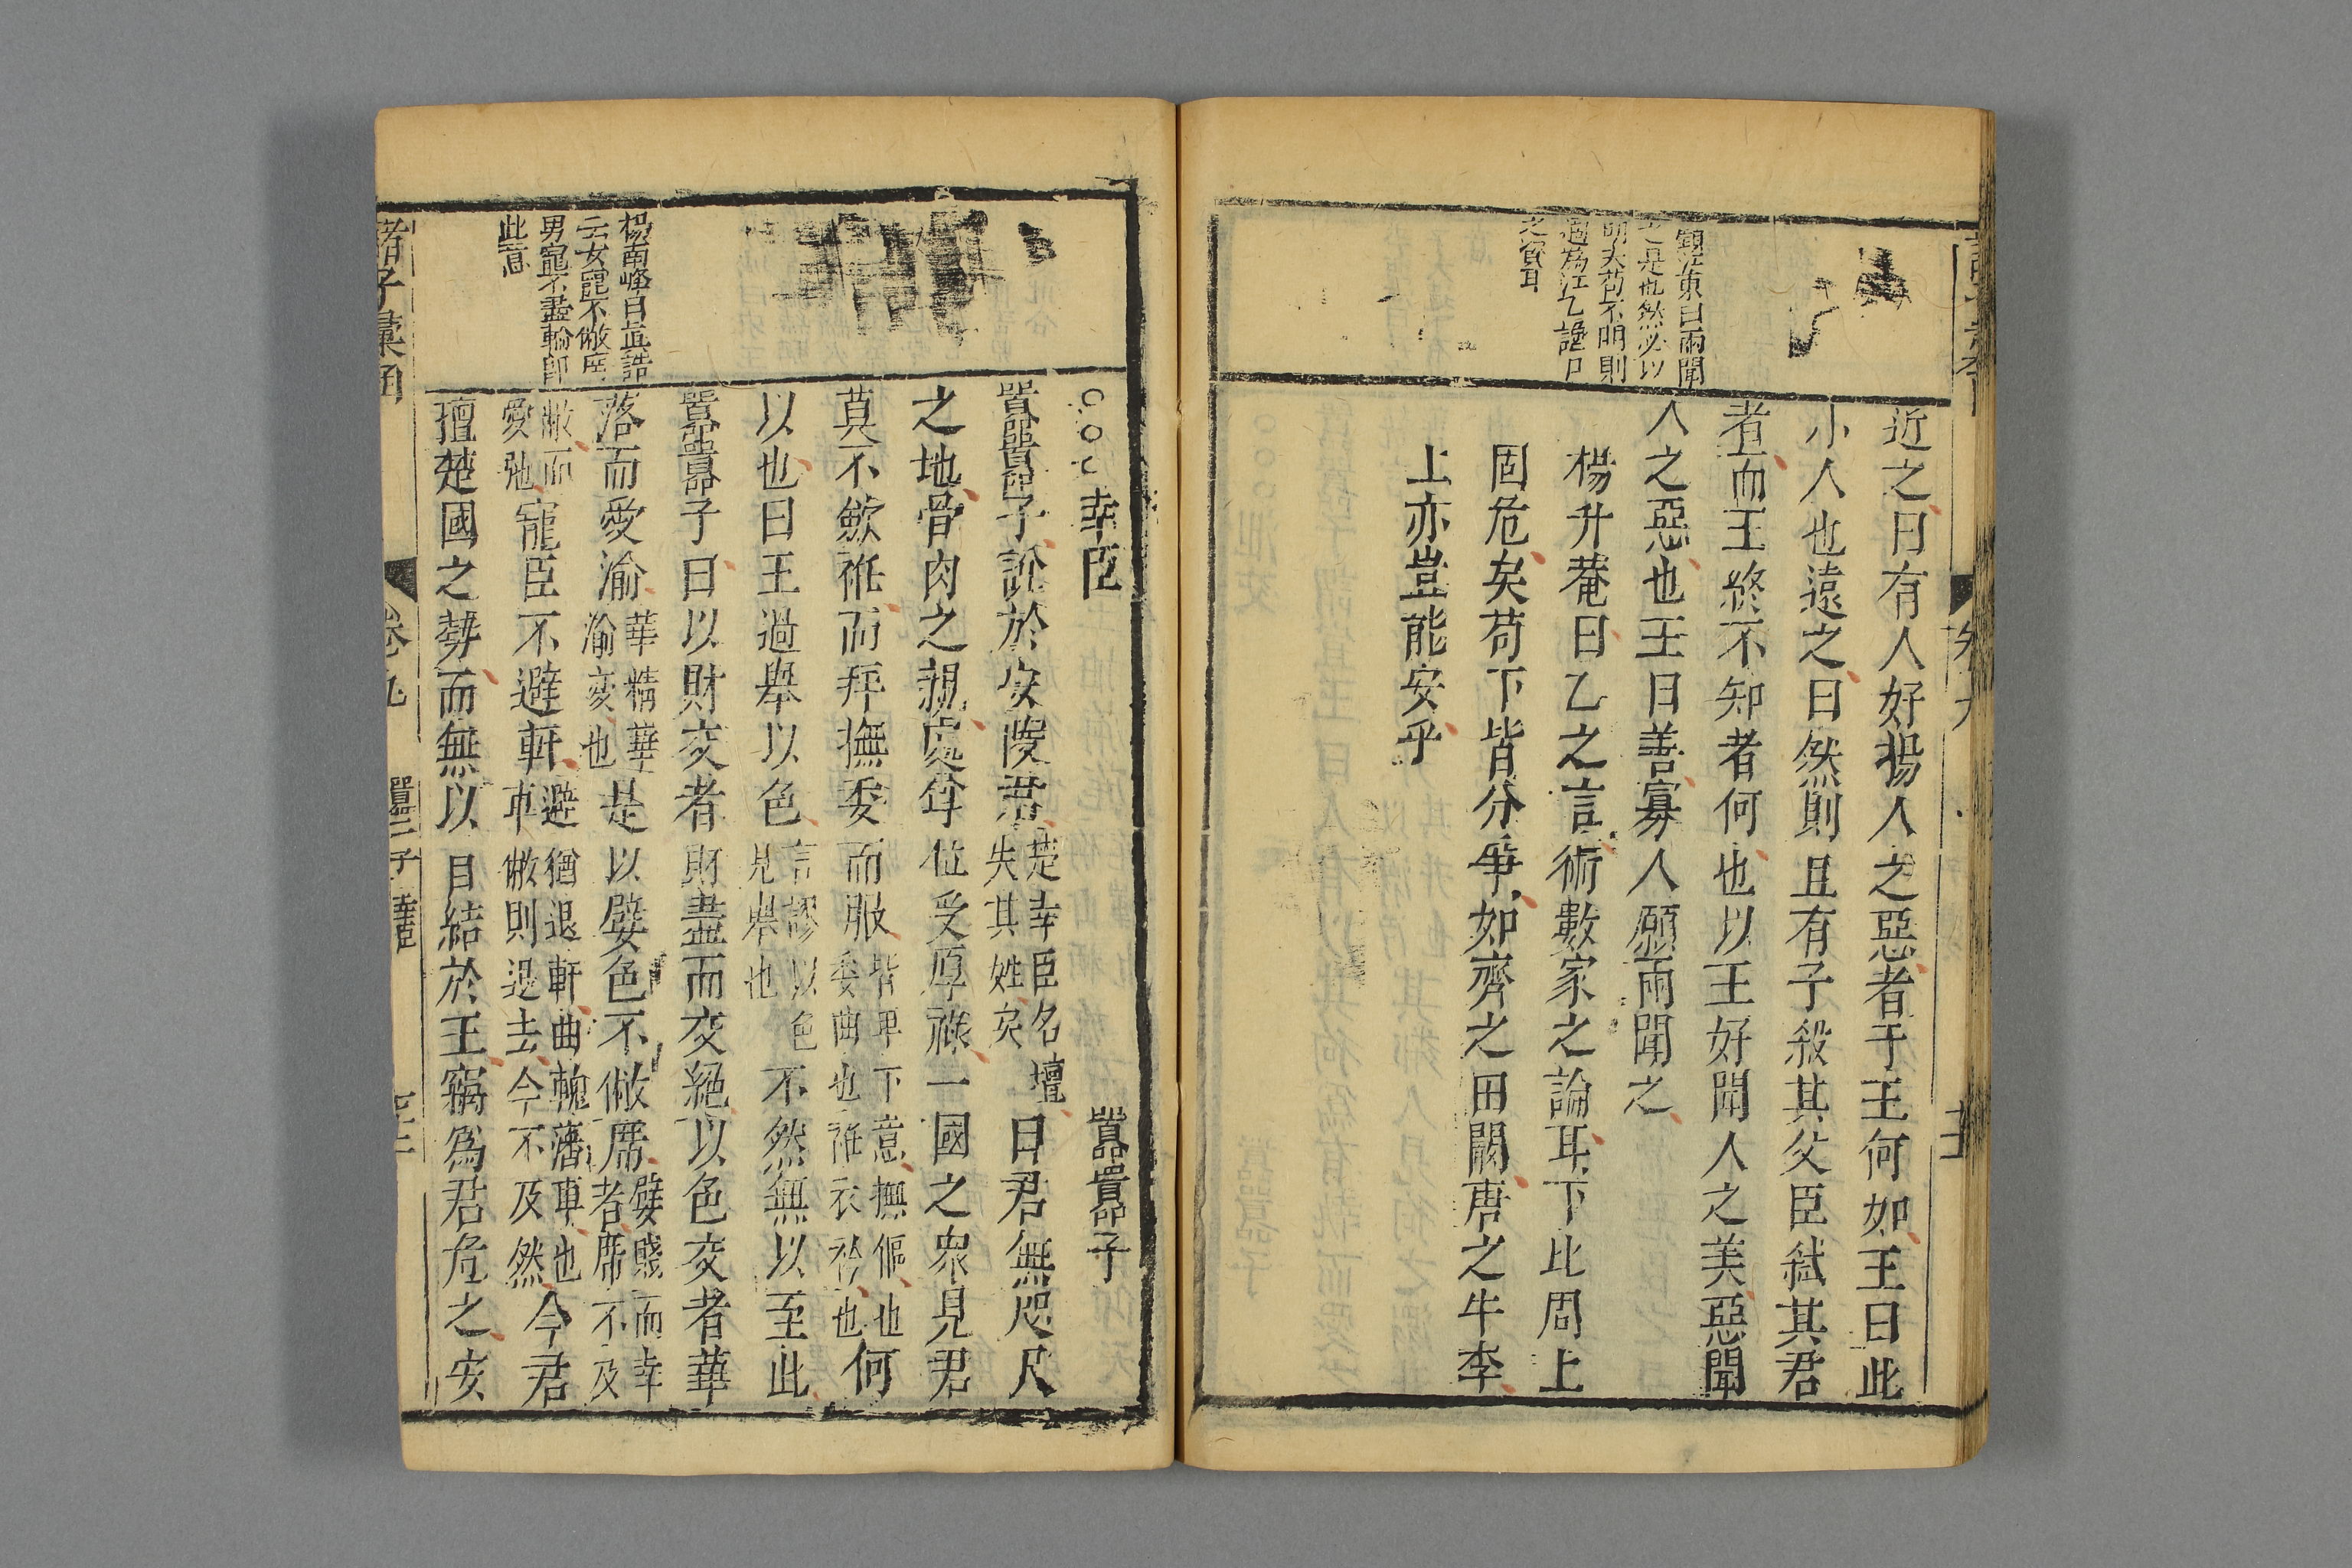 近之曰有人好揚人之惡者于王何如王曰此
小人也遠之曰然則且有子殺其父臣弒其君
者而王終不知者何也以王好聞人之美惡聞
人之惡也王曰善寡人願兩聞之
楊升菴曰乙之言術數家之論耳下比周上
固危矣苟下皆分爭如齊之田闞唐之牛李
上亦豈能安乎
東曰兩聞
之是也然必以
明夫苟不明則
適為江乙讒口
之資耳
幸臣
囂囂子
囂囂子說於安陵君楚幸臣名壇失其姓矣曰君無咫尺
之地骨肉之親處尊位受厚祿一國之衆見君
莫不歛袵而拜撫委而服皆卑下意撫傴也委曲也袵衣衿也何
以也曰王過舉以色言謬以色見舉也不然無以至此
囂囂子曰以財交者財盡而交絕以色交者華
落而愛渝華精華渝変也是以嬖色不敝席嬖賤而幸者席不及
敝而愛弛寵臣不避軒避猶退軒曲輈藩車也車敝則退去今不及然今君
擅楚國之勢而無以自結於王竊為君危之安
楊南峰曰真誥
云女寵不敝席
男寵不盡輪卽
此意
諸子彙函
卷九
囂囂子 幸臣